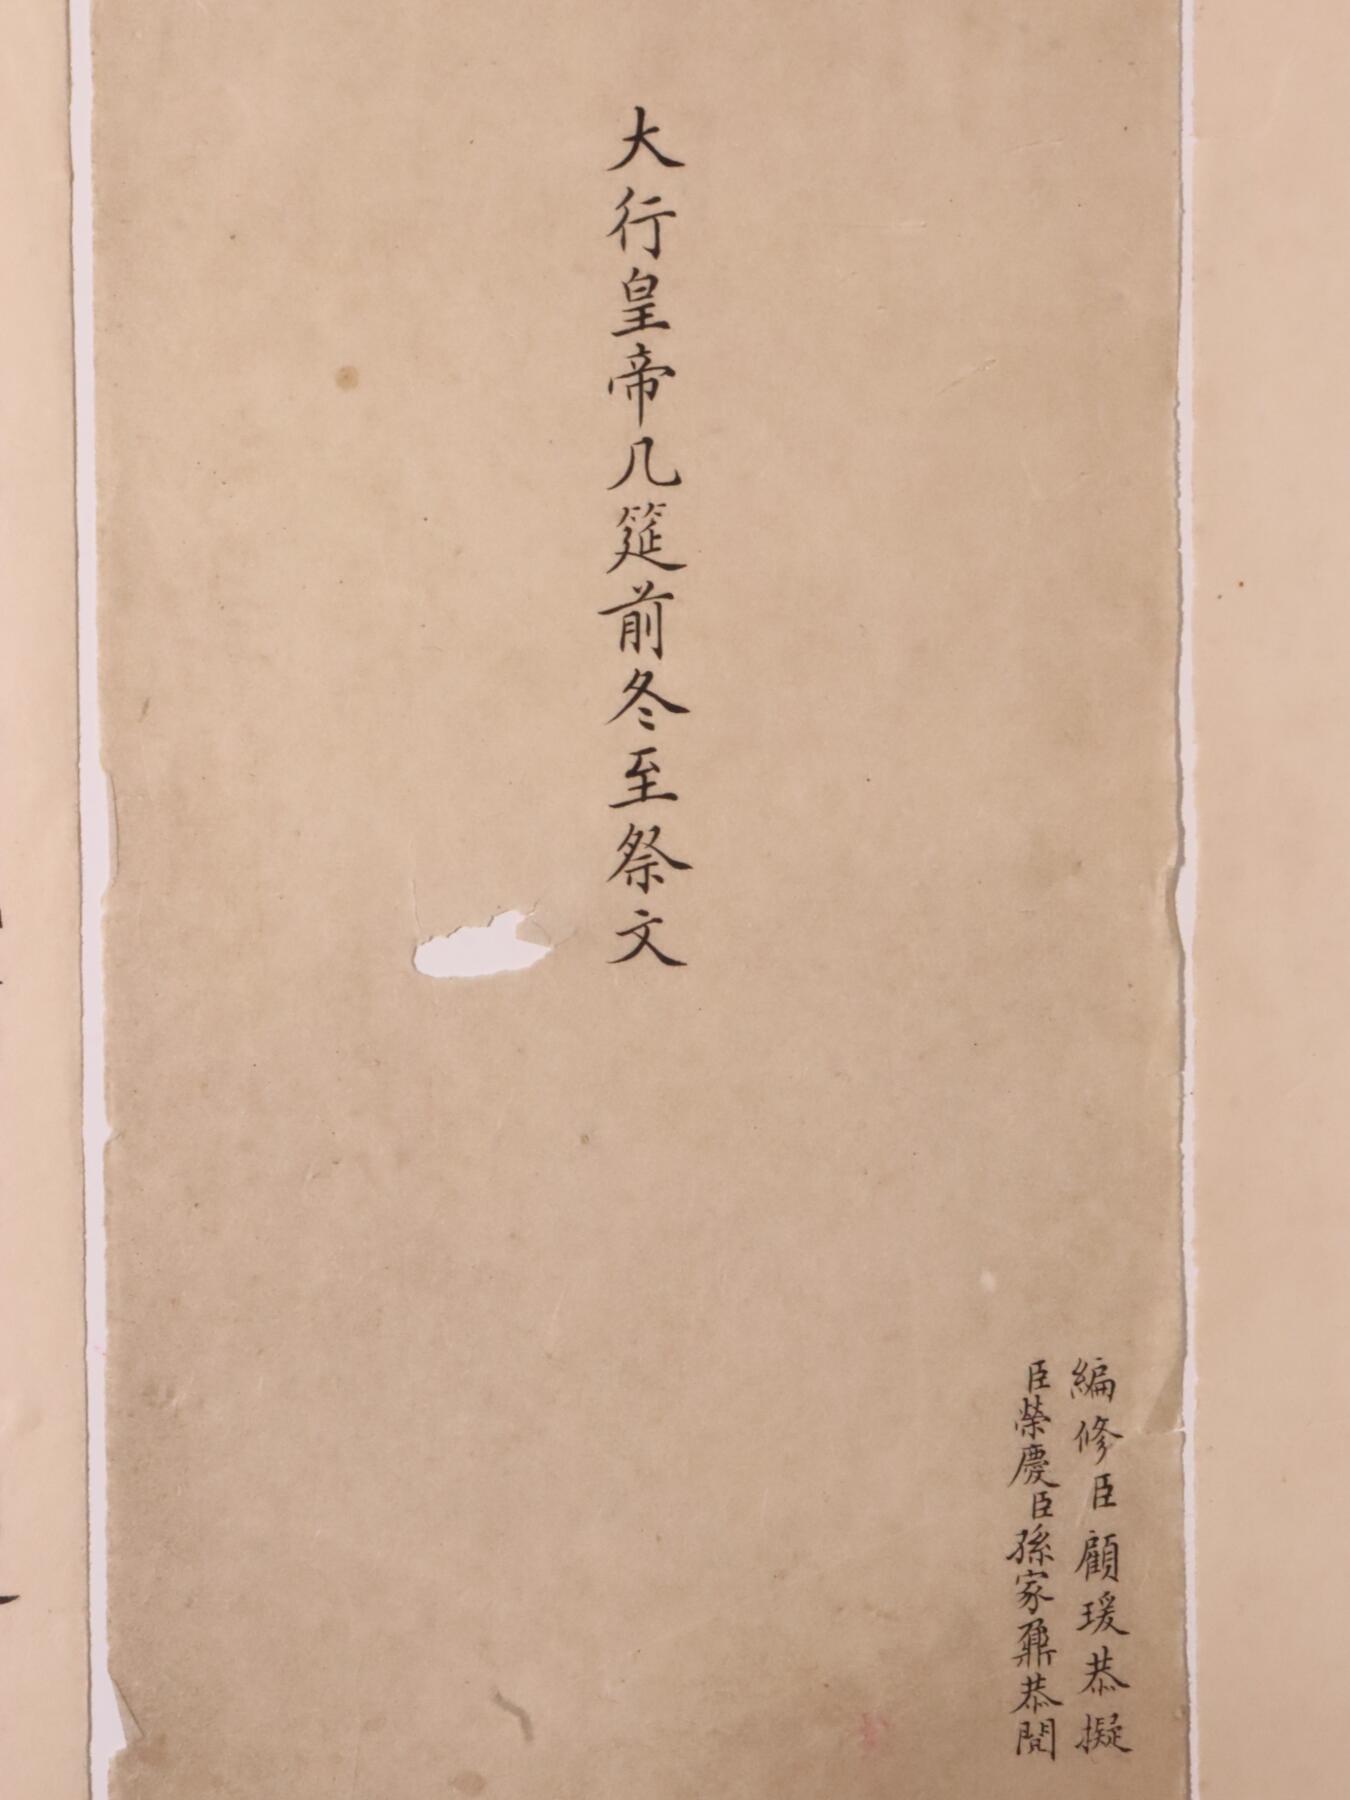 大行皇帝几筵前冬至祭文
編修臣顧瑗恭擬
臣榮慶臣孫家鼐恭閱